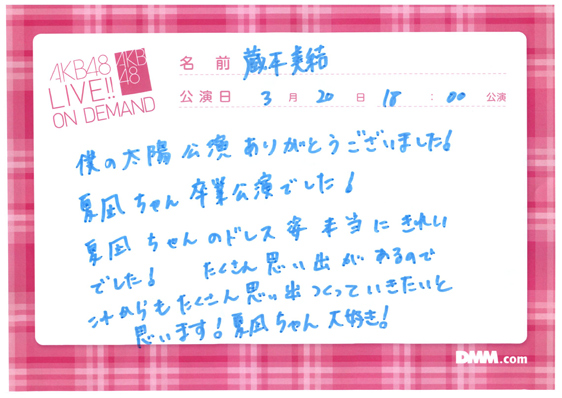 AKB48
LIVE!!
ON DEMAND
AKB
48
名 前 蔵本美結
公演日 3 月 20 日 18 : 00 公演
僕の太陽 公演 ありがとうございました!
夏凪ちゃん 卒業公演でした!
夏凪 ちゃん のドレス 姿 本当 に きれい
でした! たくさん 思い 出が あるので
これからも たくさん 思い出 つくって いきたいと
思います! 夏凪ちゃん 大好き!
DMM.com